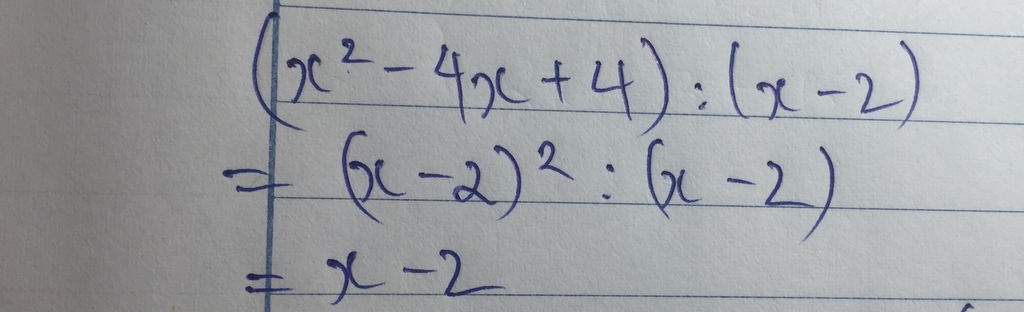 (x² - 4x + 4) : (x - 2)
= (x - 2)² : (x - 2)
= x - 2